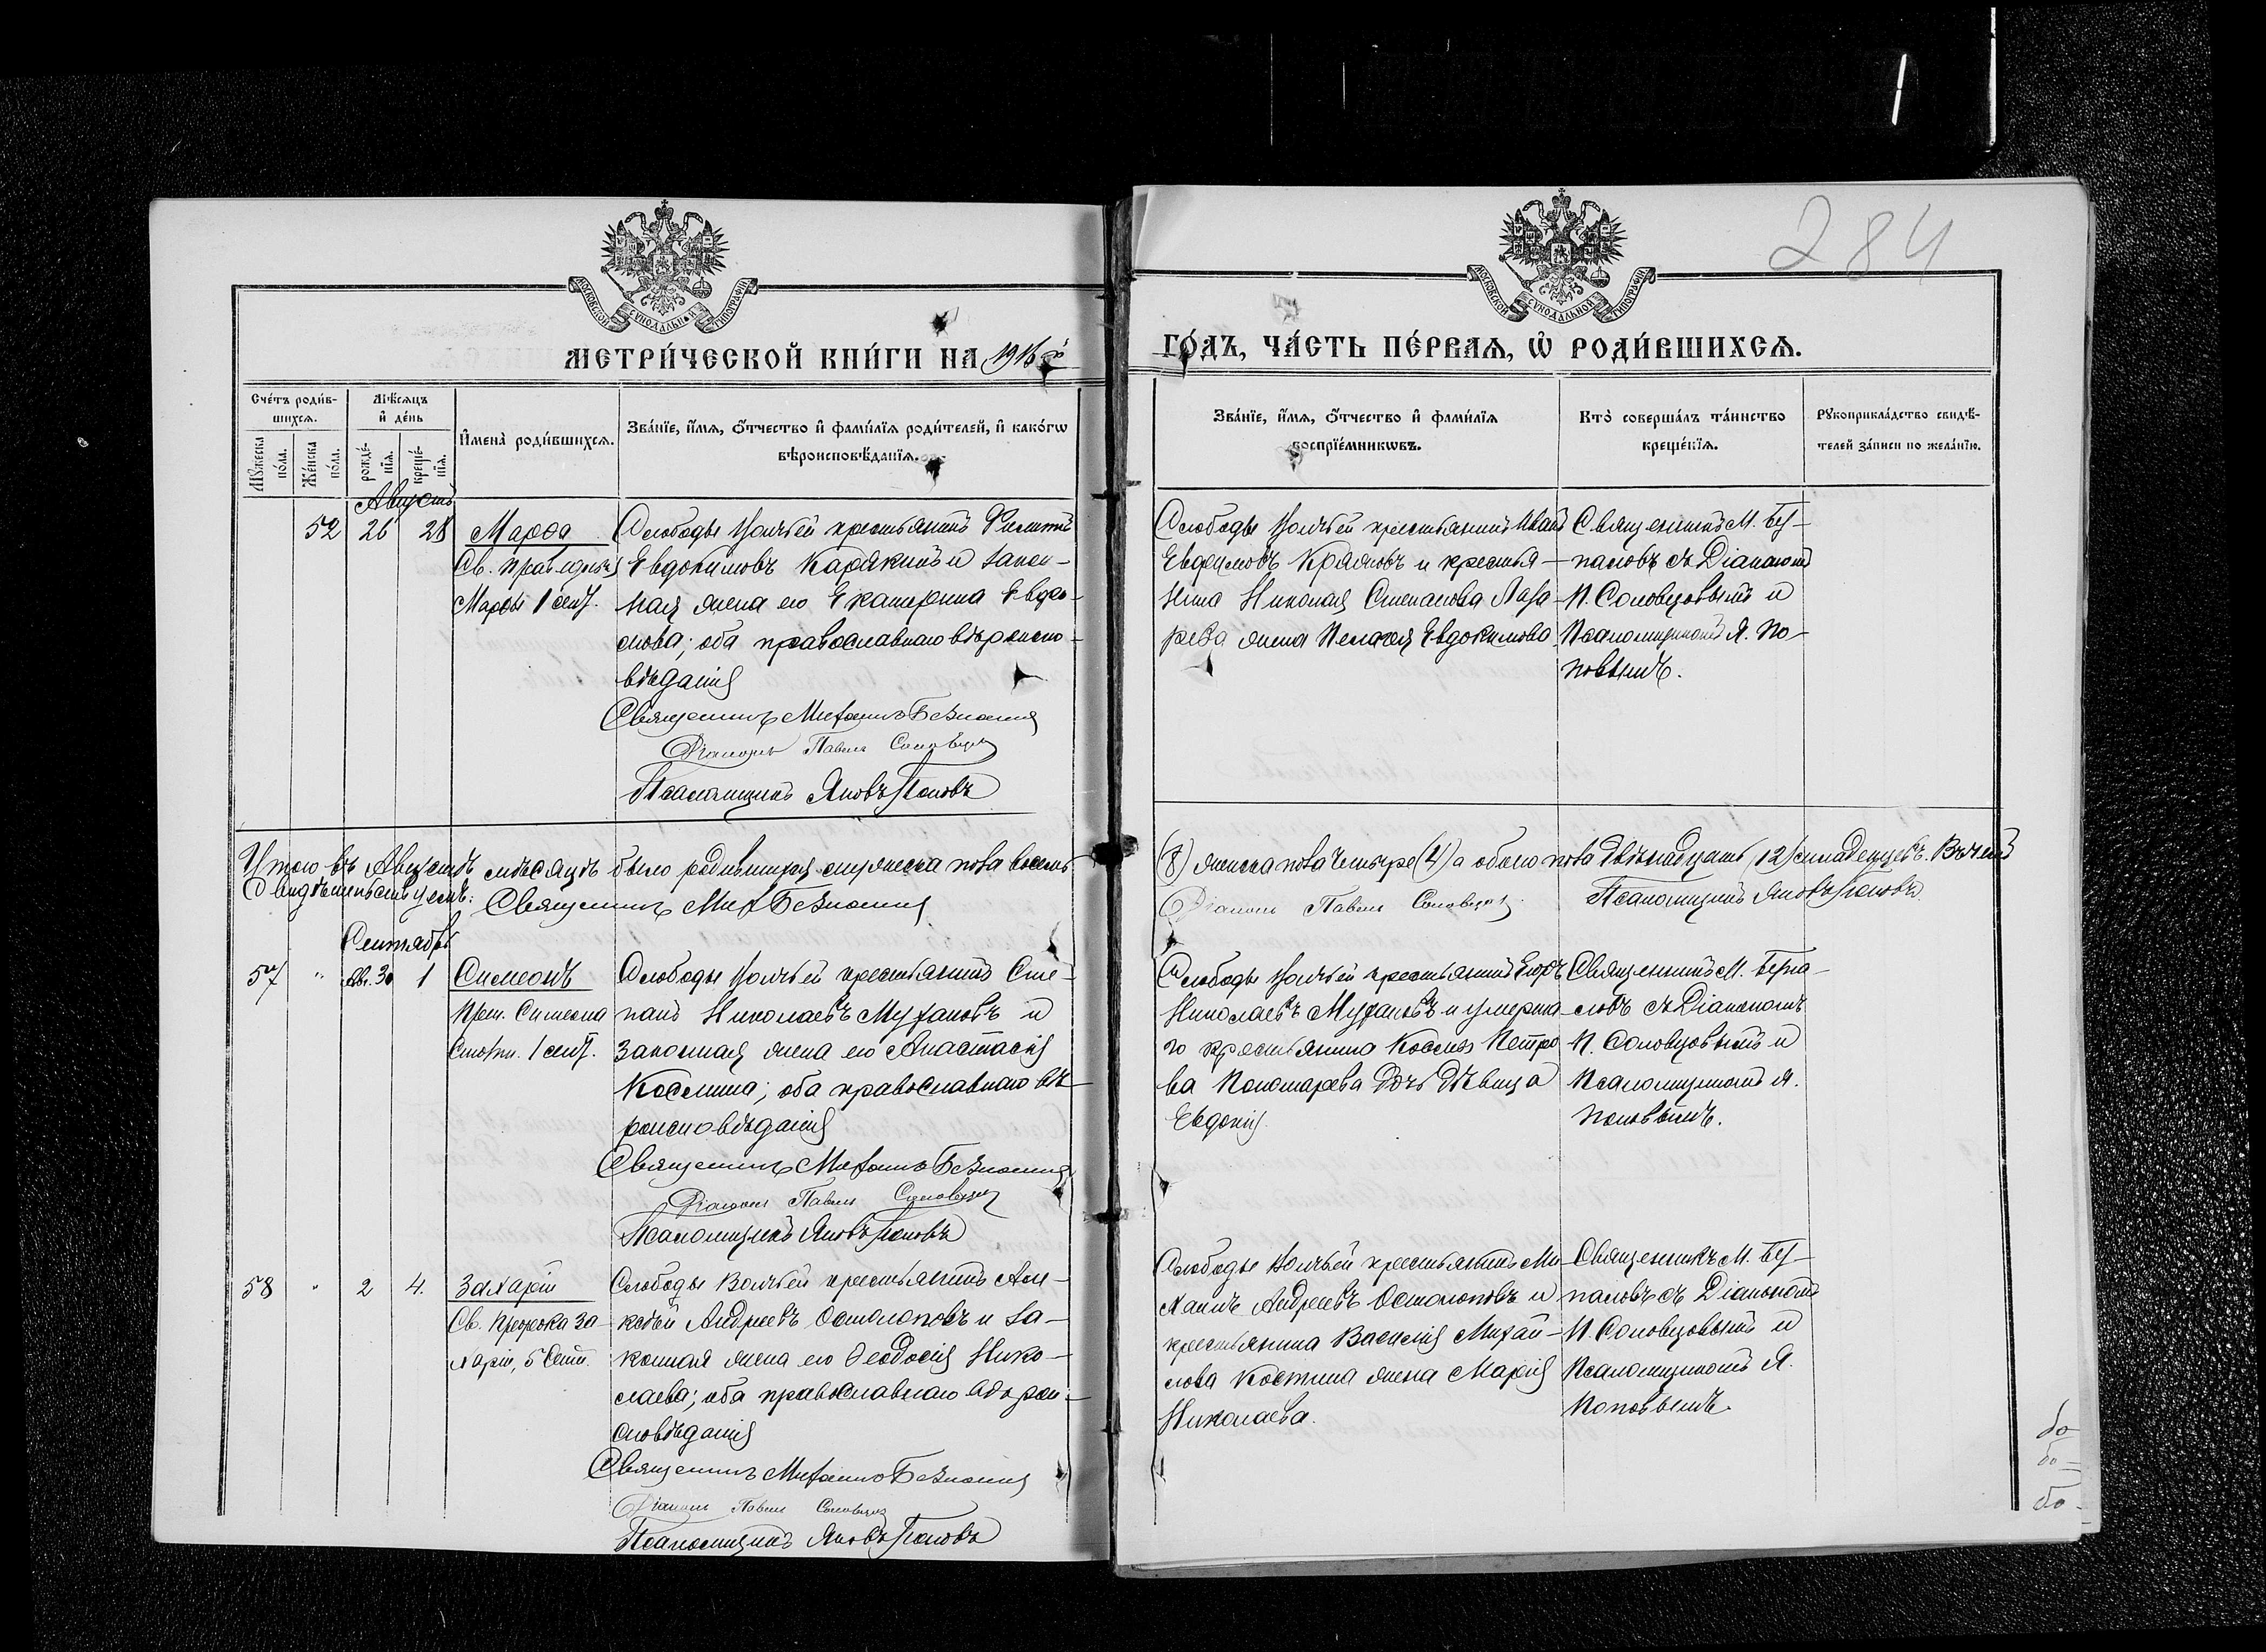 284
МОСКОВСКОЙ СУНОДАЛЬНОЙ ТИПОГРАФІИ
МОСКОВСКОЙ СУНОДАЛЬНОЙ ТИПОГРАФІИ
МЕТРИ́ЧЕСКОЙ КНИ́ГИ НА 1916й
ГО́ДЪ, ЧА́СТЬ ПЕ́РВАѦ, Ѡ҆ РОДИ́ВШИХСѦ.
Сче́тъ роди́в-
шихсѧ.
Мꙋ́жеска по́ла.
Же́нска по́ла.
Мѣ́сѧцъ
и҆ де́нь
рожде́-
нїѧ.
креще́-
нїѧ.
И҆мена̀ роди́вшихсѧ.
Зва́нїе, и҆́мѧ, ѻ҆́тчество и҆ фами́лїѧ роди́телей, и҆ како́гѡ
вѣроисповѣ́данїѧ.
Зва́нїе, и҆́мѧ, ѻ҆́тчество и҆ фами́лїѧ
воспрїе́мникѡвъ.
Кто̀ соверша́лъ та́инство
креще́нїѧ.
Рꙋкоприкла́дство свидѣ́-
телей за́писи по жела́нїю.
Августъ
52 26 28 Марѳа
Св. праведныя
Марѳы 1 сент.
Слободы Волчьей крестьянинъ Филиппъ
Евдокимовъ Карякинъ и закон-
ная жена его Екатерина Евдо-
кимова; оба православнаго вѣроиспо-
вѣданія
Священникъ Михаилъ
Діаконъ Павелъ Соловцовъ
Псаломщикъ Яковъ Поповъ
Слободы Волчьей крестьянинъ Иванъ
Евфимовъ и крестья-
нина Николая Степанова Лаза-
рева жена Пелагея Евдокимова
Священникъ М.
съ Діакономъ
П. Соловцовымъ и
Псаломщикомъ Я. По-
повымъ.
Итого въ Августѣ мѣсяцѣ было родившихся мужеска пола восемь
(8) женска пола четыре (4) а обоего пола двѣнадцать (12) младенцевъ. В чемъ
свидѣтельствуемъ: Священникъ Мих.
Діаконъ Павелъ Соловцовъ
Псаломщикъ Яковъ Поповъ
Сентябрь
57 " Ав. 30 1 Симеонъ
Преп. Симеона
Столпн. 1 сент.
Слободы Волчьей крестьянинъ Сте-
панъ Николаевъ Мухановъ и
законная жена его Анастасія
Косьмина; оба православнаго вѣ-
роисповѣданія
Священникъ Михаилъ
Діаконъ Павелъ Соловцовъ
Псаломщикъ Яковъ Поповъ
Слободы Волчьей крестьянинъ
Николаевъ Мухановъ и умерша-
го крестьянина Косьмы Петро-
ва Пономарева дочь дѣвица
Евдокія
Священникъ М.
съ Діакономъ
П. Соловцовымъ и
Псаломщикомъ Я.
Поповымъ.
58 " 2 4. Захарій
Св. Пророка За-
харіи, 5 Сент.
Слободы Волчьей крестьянинъ Але-
ксѣй Андреевъ Остолоповъ и за-
конная жена его Ѳеодосія Нико-
лаева; оба православнаго вѣрои-
сповѣданія
Священникъ Михаилъ
Діаконъ Павелъ Соловцовъ
Псаломщикъ Яковъ Поповъ
Слободы Волчьей крестьянинъ Ми-
хаилъ Андреевъ Остолоповъ и
крестьянина Василія Михай-
лова Костина жена Марія
Николаева.
Священникъ М.
съ Діакономъ
П. Соловцовымъ и
Псаломщикомъ Я.
Поповымъ.